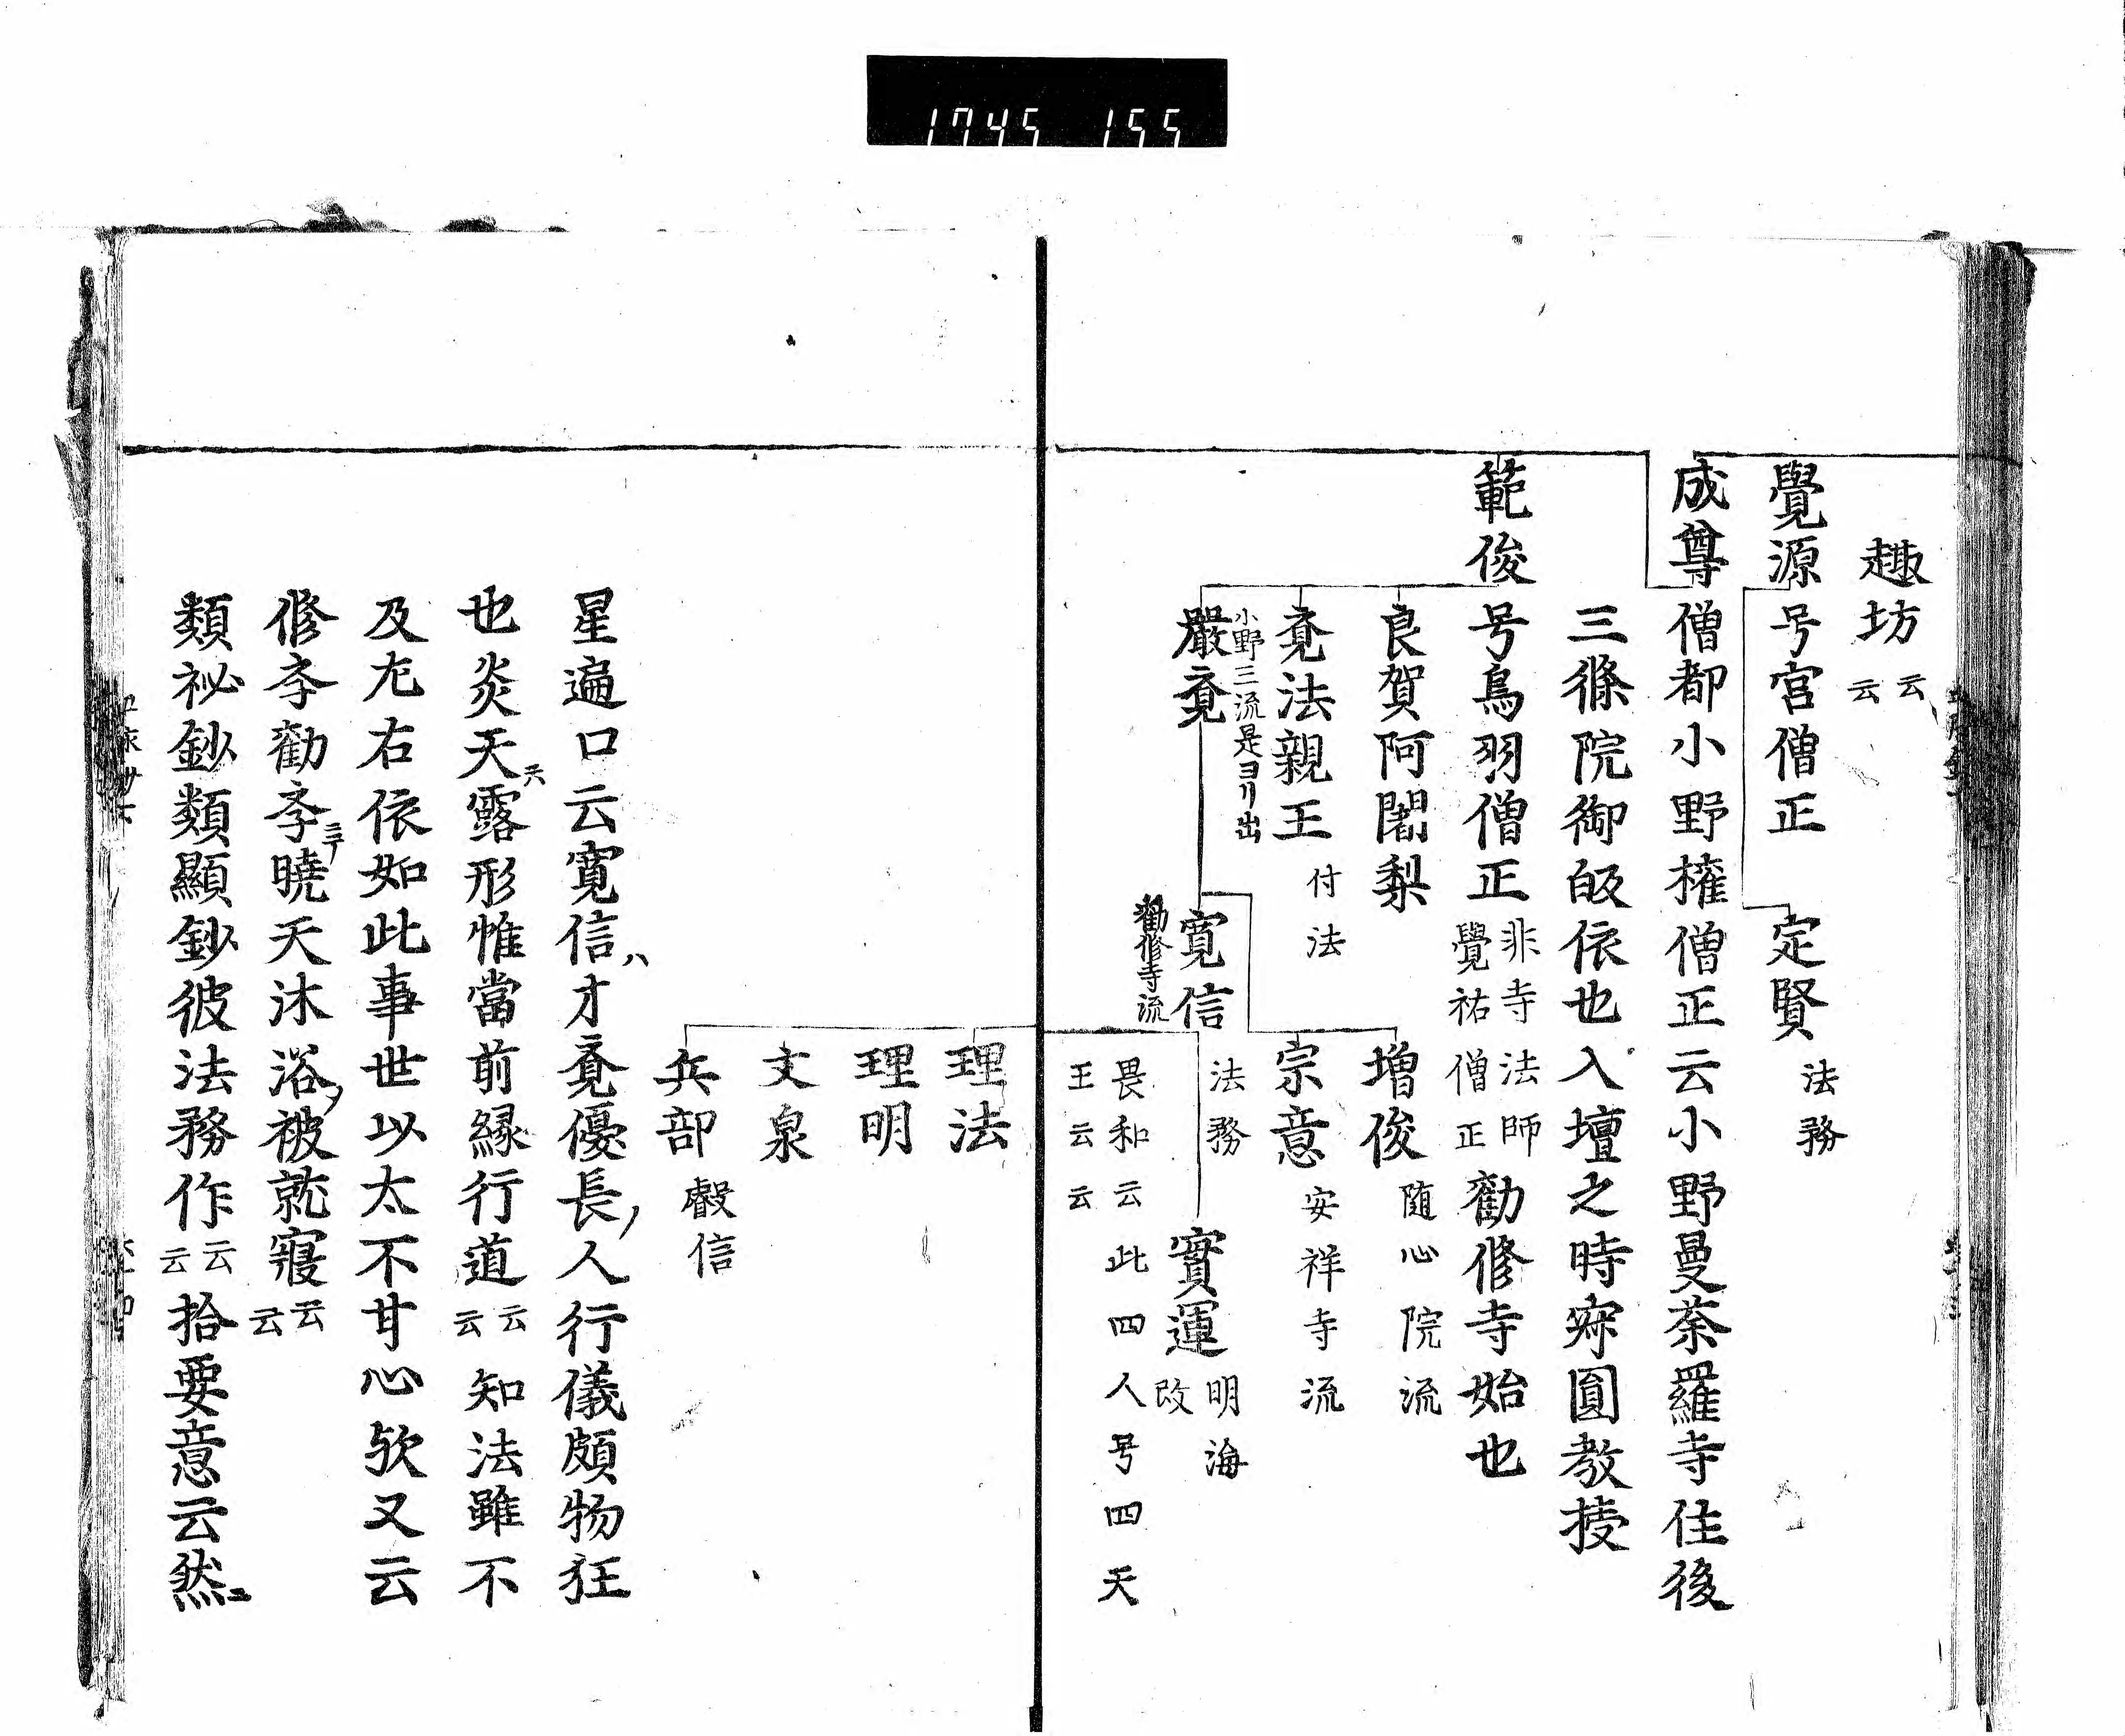 1745 155
趣坊云云
覺源号宮僧正 定賢 法務
成尊僧都小野権僧正云小野曼荼羅寺住後
三條院御皈依也入壇之時寂圓教授
範俊号鳥羽僧正非寺法師覺祐僧正勸修寺始也
良賀阿闍梨 増俊 随心院流
覔法親王 付法 宗意 安祥寺流
小野三流是ヨリ出
嚴覔 寛信 法務 實運 明海改
勸修寺流
畏和云此四人号四天
王云云
理法
理明
文泉
兵部 叡信
星遍口云寛信ハ才覔優長ノ人行儀頗物狂
也炎天ニ露形惟當前縁行道云云知法雖不
及尤右依如此事世以太不甘心欤又云
修李勸李ニテ曉天沐浴ノ被就寢云云
類祕鈔類顯鈔彼法務作云云拾要意云然ニ